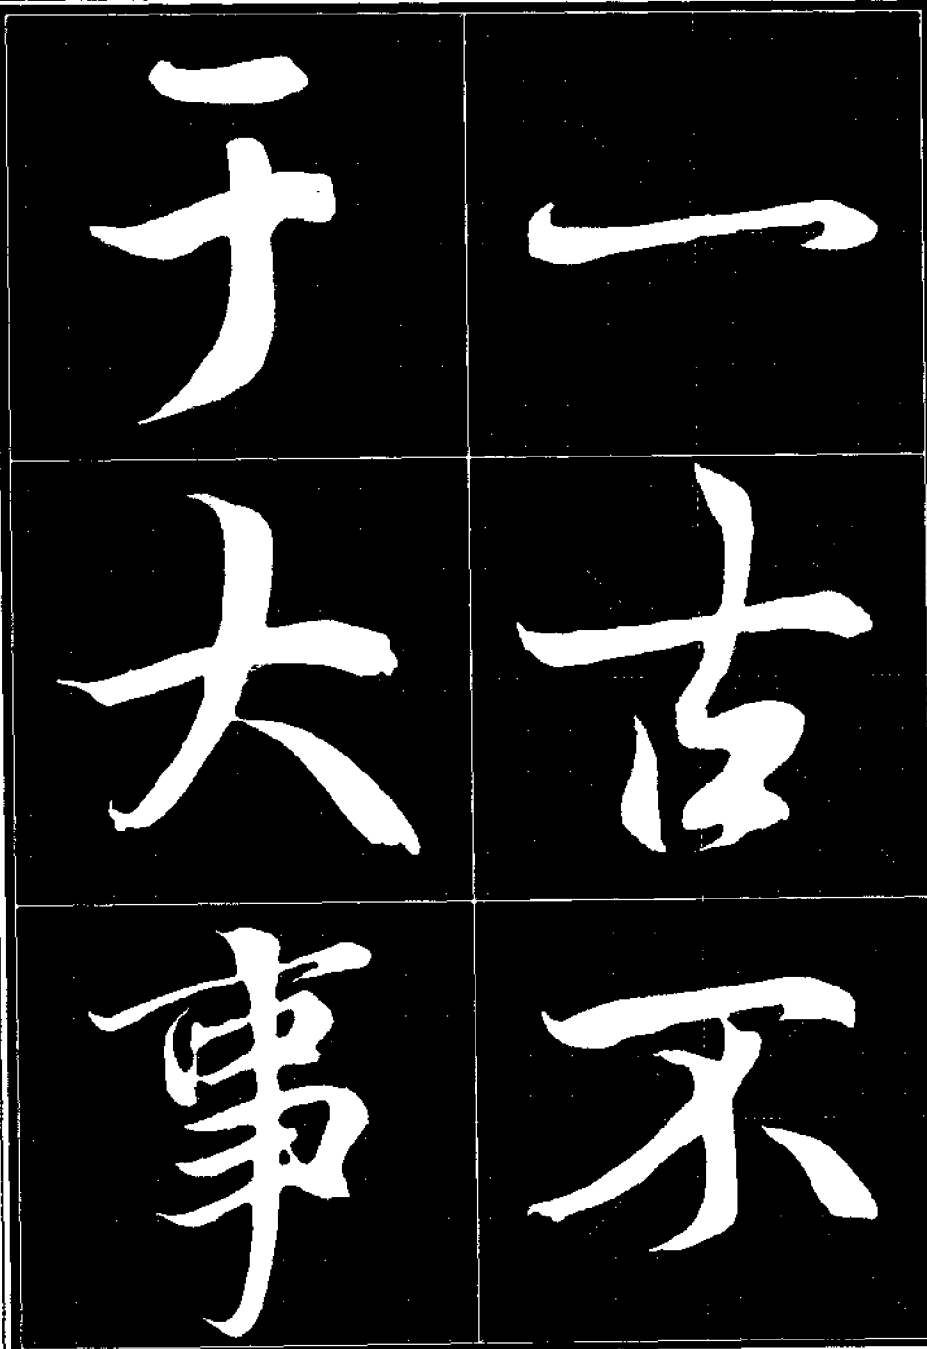 一古不
于大事